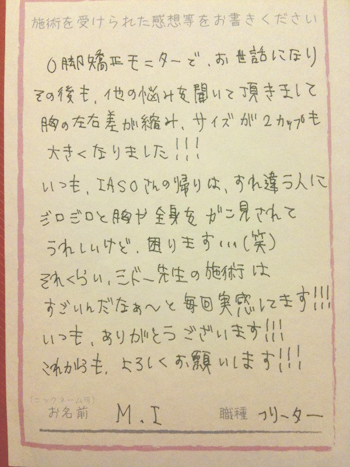 施術を受けられた感想等をお書きください
O脚矯正モニターで、お世話になり
その後も、他の悩みを聞いて頂きまして
胸の左右差が縮み、サイズが2カップも
大きくなりました!!!
いつも、IASOさんの帰りは、すれ違う人に
ジロジロと胸や全身をガン見されて
うれしいけど、困ります…(笑)
それくらい、ミドー先生の施術は
すごいんだなぁ〜と毎回実感してます!!!
いつも、ありがとうございます!!!
これからも、よろしくお願いします!!!
(ニックネーム可)
お名前 M.I 職種 フリーター